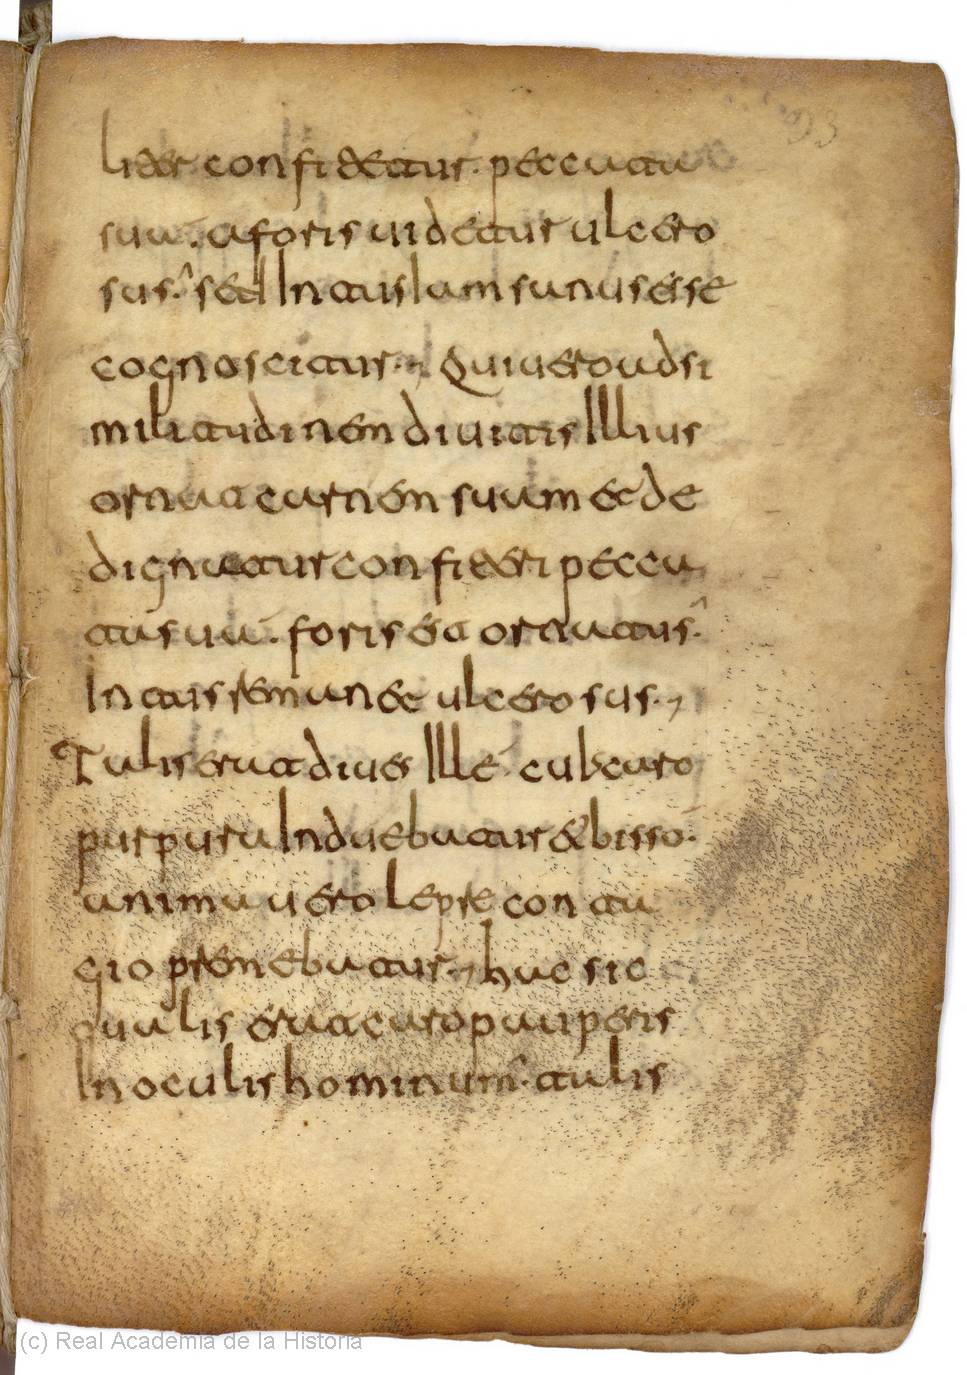 93
liter confitetur peccata
sua. a foris uidetur ulcero
sus. sed Intus iam sanus esse
cognoscitur. Qui uero ad si
militudinem diuitis Illius
ornat carnem suam et de
dignatur confiteri pecca
ta sua. foris est ornatus.
Intus remanet ulcerosus.
Talis erat diues Ille. cui caro
purpura Induebatur & bisso.
anima uero lepre conta
gio premebatur. hac sic
qualis erat caro pauperis
In oculis hominum. talis
(c) Real Academia de la Historia